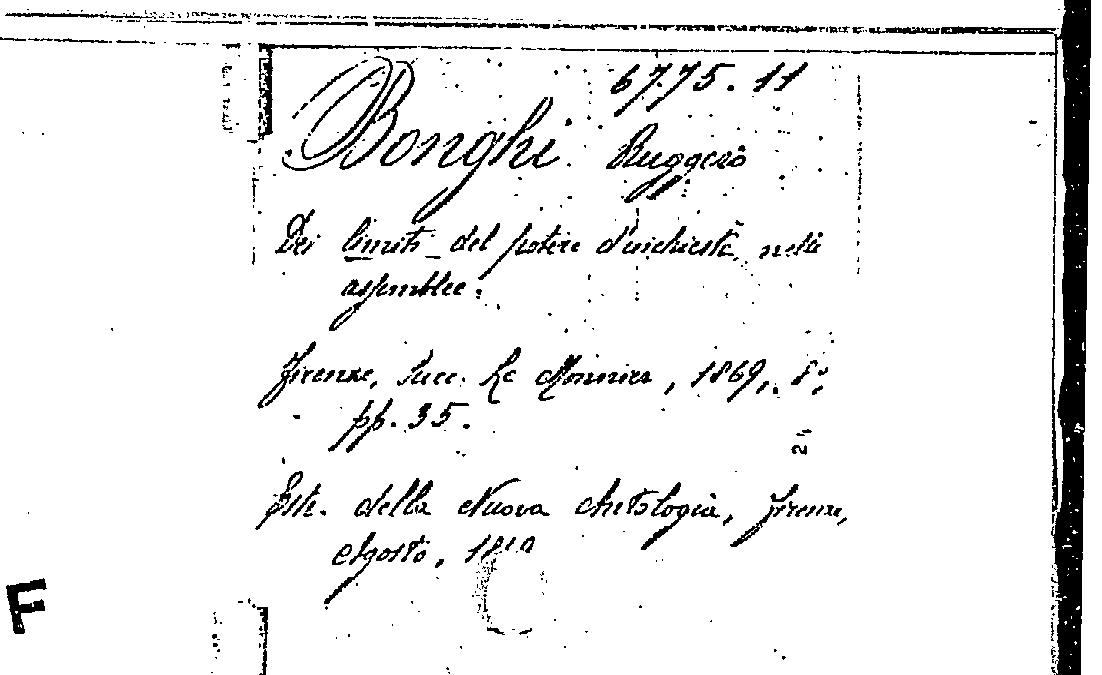 6775.11
Bonghi Ruggero
Dei limiti del potere d'inchiesta nelle
assemblee.
Firenze, Succ. Le Monnier, 1869, 8°,
pp. 35.
Estr. della Nuova Antologia, Firenze,
Agosto, 1869
F